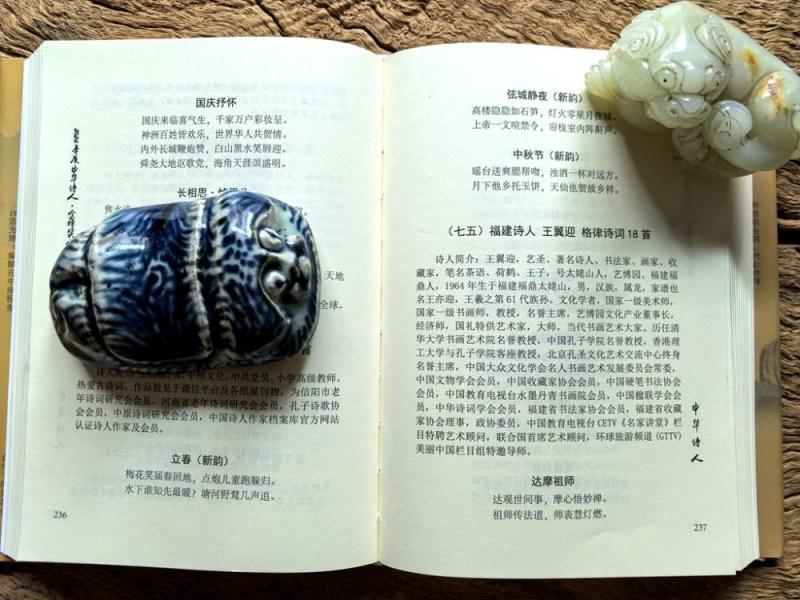 国庆抒怀
国庆来临喜气生,千家万户彩妆呈。
神洲百姓皆欢乐,世界华人共贺情。
内外长城鞭炮赞,白山黑水笑唇迎。
舜尧大地讴歌党,海角天涯颂盛明。
长相思·
天地
全球。
首
热爱古诗词,作品散见于微信平台及各纸媒刊物。为信阳市老
年诗词研究会会员,河南省老年诗词研究会会员,孔子诗歌协
会会员,中原诗词研究会会员,中国诗人作家档案库官方网站
认证诗人作家及会员。
立春(新韵)
梅花笑届春回地,点炮儿童跑躲归。
水下谁知先最暖?塘河野鹜几声追。
236
弦城静夜(新韵)
高楼隐隐如石笋,灯火零星月夜城。
上帝一文喧禁令,帘栊室内阵鼾声。
中秋节(新韵)
瑶台送爽腮帮吻,浊酒一杯对远方。
月下他乡托玉饼,天仙也贺故乡祥。
(七五)福建诗人 王翼迎 格律诗词 18 首
诗人简介:王翼迎,艺圣、著名诗人、书法家、画家、收
藏家,笔名茶语、荷鹤、王子,号太姥山人,艺博园。福建福
鼎人,1964 年生于福建福鼎太姥山,男,汉族,属龙,家谱也
名王亦迎,王羲之第 61 代族孙。文化学者,国家一级美术师,
国家一级书画师,教授,名誉主席,艺博园文化产业董事长,
经济师,国礼特供艺术家,大师,当代书画艺术大家。历任清
华大学书画艺术院名誉教授,中国孔子学院名誉教授,香港理
工大学与孔子学院客座教授,北京孔圣文化艺术交流中心终身
名誉主席,中国大众文化学会名人书画艺术发展委员会常委,
中国文物学会会员,中国收藏家协会会员,中国硬笔书法协会
会员,中国教育电视台水墨丹青书画院会员,中国楹联学会会
员,中华诗词学会会员,福建省书法家协会会员,福建省收藏
家协会理事,政协委员,中国教育电视台 CETV《名家讲堂》栏
目特聘艺术顾问,联合国首席艺术顾问,环球旅游频道(GTTV)
美丽中国栏目组特邀导师。
达摩祖师
达观世间事,摩心悟妙禅。
祖师传法道,师表慧灯燃。
中华诗人
237